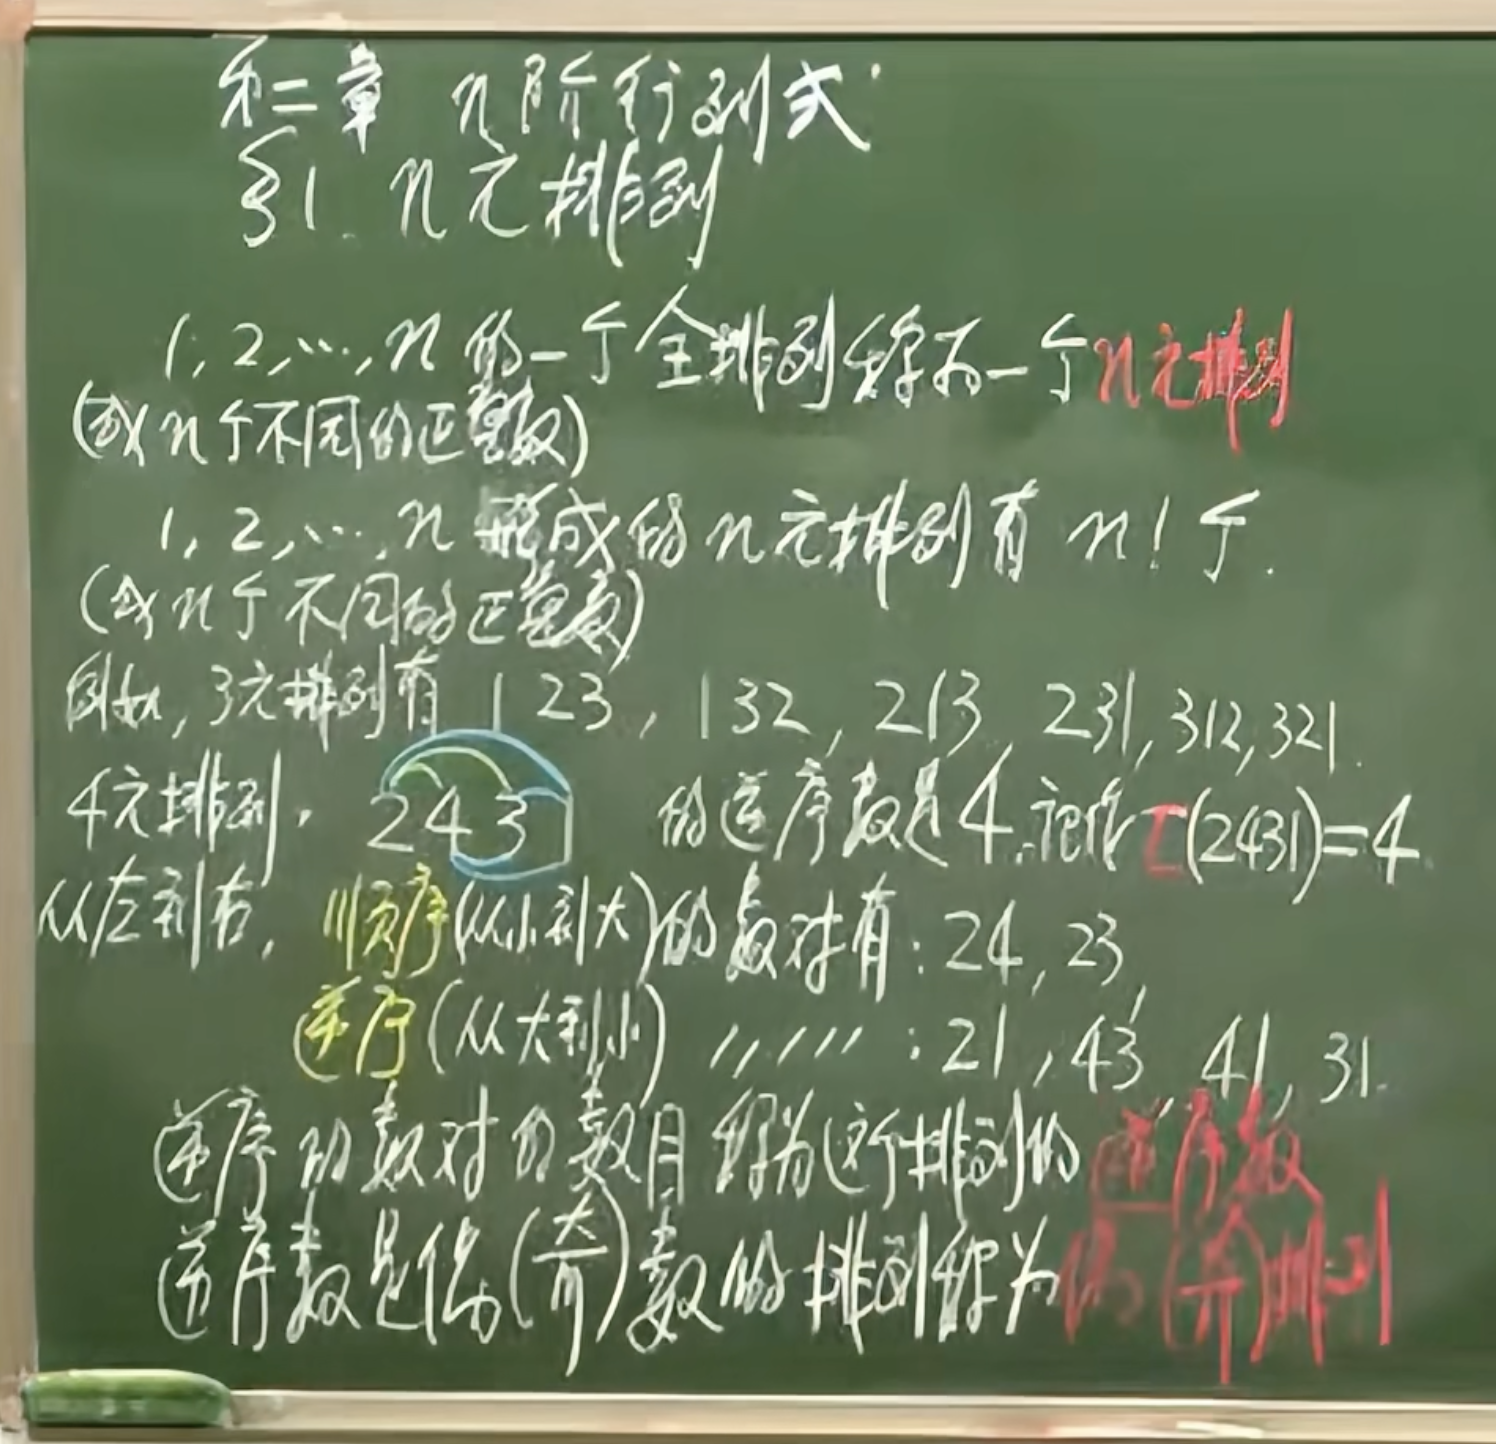 第二章 n阶行列式
§1. n元排列
1, 2, …, n 的一个全排列称为一个n元排列
(或n个不同的正整数)
1, 2, …, n 形成的n元排列有 n! 个.
(或n个不同的正整数)
例如, 3元排列有 123, 132, 213, 231, 312, 321.
4元排列. 243 的逆序数是4. 记作 τ(2431)=4.
从左到右, 顺序(从小到大)的数对有: 24, 23,
逆序(从大到小) 〃〃〃: 21, 43, 41, 31.
逆序的数对的数目称为这个排列的逆序数
逆序数是偶(奇)数的排列称为偶(奇)排列